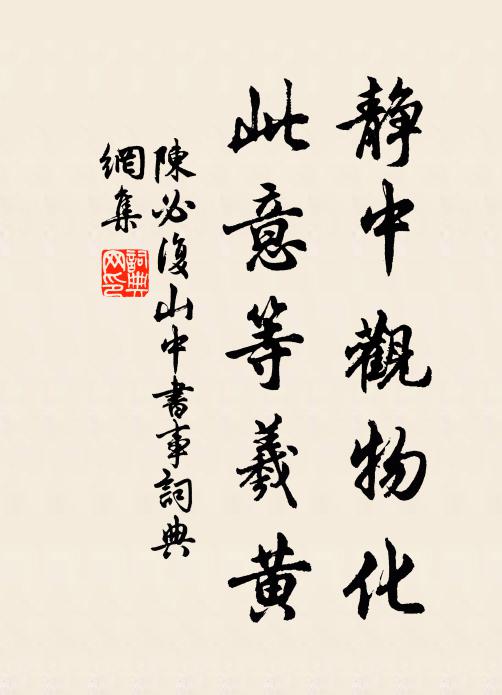 靜中觀物化
此意等羲黃
陳必復山中書事詞典
網集
詞典
网印